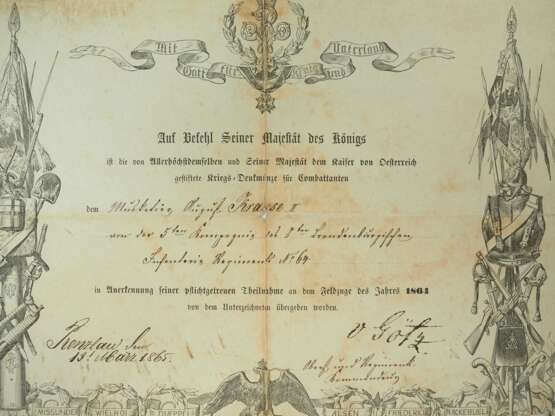 Mit Vaterland
Gott für König und
Auf Befehl Seiner Majestät des Königs
ist die von Allerhöchstdemselben und Seiner Majestät dem Kaiser von Oesterreich
gestiftete Kriegs-Denkmünze für Combattanten
dem Musketier August Krause II
von der 5ten Kompagnie des 8ten Brandenburgischen
Infanterie Regiments No 64
in Anerkennung seiner pflichtgetreuen Theilnahme an dem Feldzuge des Jahres 1864
von dem Unterzeichneten übergeben worden.
Prenzlau den
19t März 1865.
v Götz
Oberst und Regiments
Commandeur
MISSUNDE WIELHOI DUEPPEL ALSEN FRIEDERIC